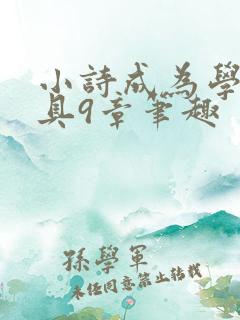 小詩成為學
具9章筆趣
孫學軍
未經同意禁止轉載